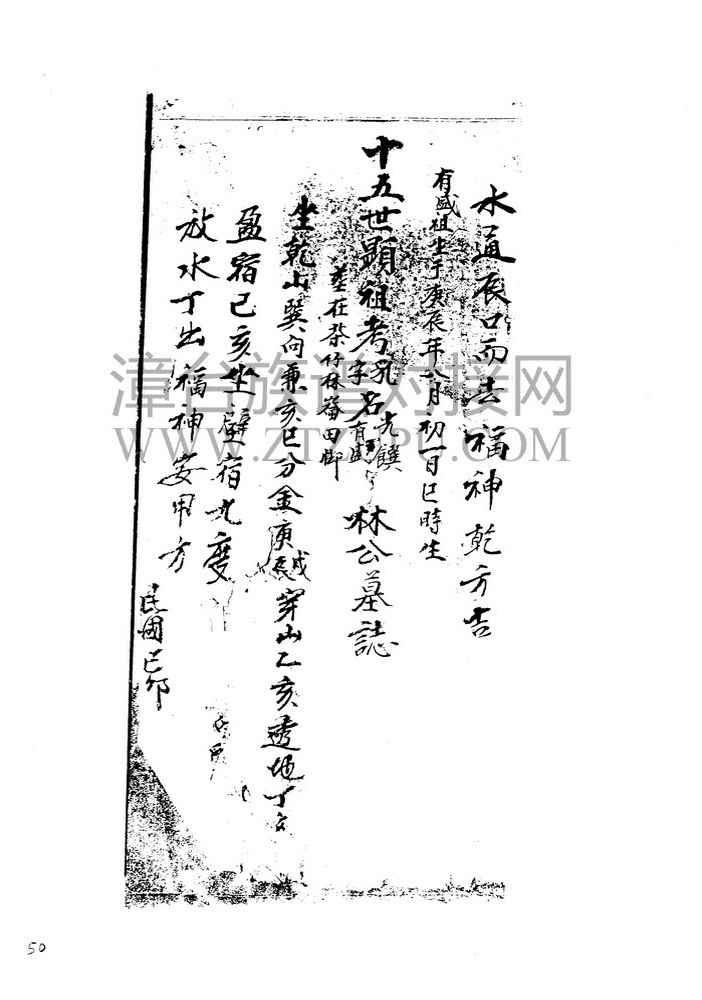 水通辰口而去福神乾方吉
有盛祖生于庚辰年八月初一日巳時生
十五世顯祖考乳名光饌字有盛林公墓誌
墓在茶竹林畬田脚
坐乾山巽向兼亥巳分金庚戌穿山乙亥透地丁亥
盈宿己亥坐壁宿九度
放水丁出福神安甲方
民國己卯
漳台族谱对接网
WWW.ZTZUPU.COM
50